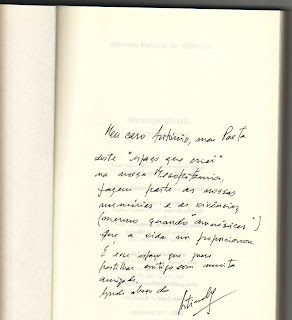 Alberto Estima de Oliveira
Mesopotâmia
Meu caro António, meu Poeta
deste "espaço que criei"
na nossa Mesopotâmia,
fazem parte as nossas
memórias e as vivências
(mesmo quando
que a vida nos proporcionou.
É esse espaço que quero
partilhar contigo com muita
amizade.
abraço do